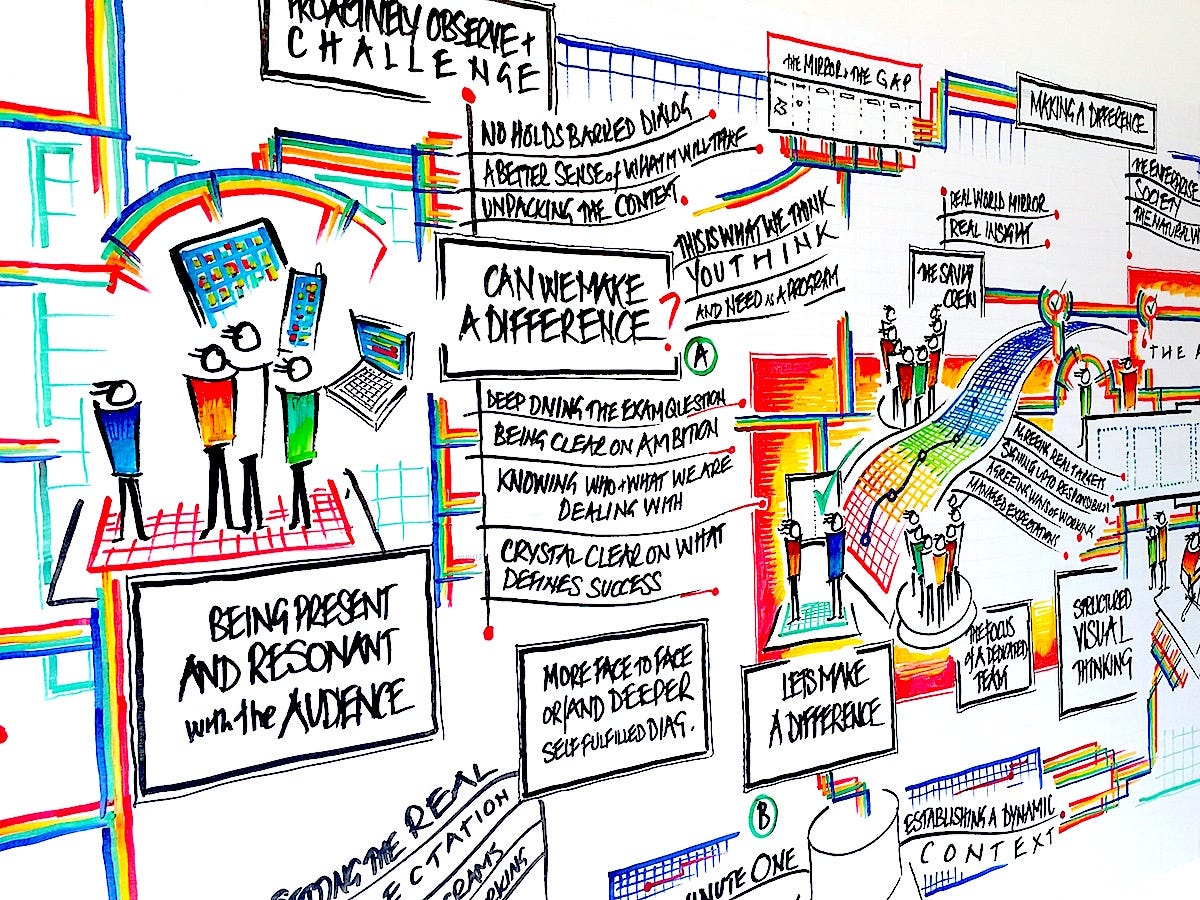 PROACTIVELY OBSERVE +
CHALLENGE
NO HOLDS BARRED DIALOG
A BETTER SENSE of WHAT IT WILL TAKE
UNPACKING THE CONTEXT
THE MIRROR + THE GAP
MAKING A DIFFERENCE
THE ENTERPRISE
SOCIETY
THE NATURAL W
REAL WORLD MIRROR
REAL INSIGHT
THIS IS WHAT WE THINK
YOU THINK
AND NEED AS A PROGRAM
THE SAVVY
CREW
CAN WE MAKE
A DIFFERENCE?
A
THE A
DEEP DIVING THE EXAM QUESTION
BEING CLEAR ON AMBITION
KNOWING WHO + WHAT WE ARE
DEALING WITH
CRYSTAL CLEAR ON WHAT
DEFINES SUCCESS
AGREEING REAL TARGETS
SIGNING UP TO RESPONSIBILI
AGREEING WAYS OF WORKING
MANAGED EXPECTATIONS
BEING PRESENT
AND RESONANT
with the AUDENCE
MORE FACE TO FACE
OR/AND DEEPER
SELF FULFILLED DIAG.
LETS MAKE
A DIFFERENCE
THE FOCUS
of A DEDICATED
TEAM
STRUCTURED
VISUAL
THINKING
B
THE REAL
ECTATION
GRAMS
RKING
INUTE ONE
ESTABLISHING A DYNAMIC
CONTEXT